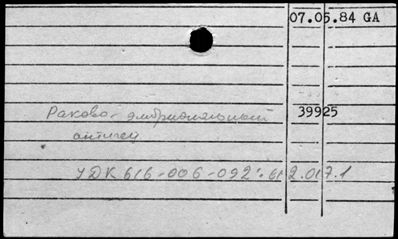 07.05.84 GA
Раково-эмбриональный 39925
антиген
УДК 616-006-092:612.017.1